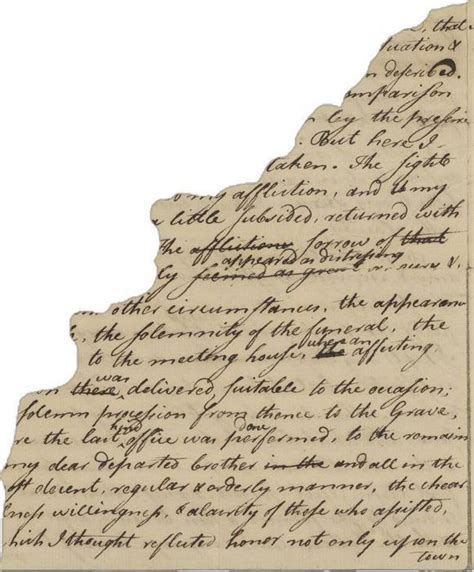 , that
uation &
n described.
mparison
n by the preserve
. But here I
taken. The sights
to my affliction, and is my
a little subsided, returned with
The afflictions sorrow of that
appeared as distressing
ly seemed as great
other circumstances, the appearan
, the solemnity of the funeral, the
where an
to the meeting house, the affecting
was
on there delivered suitable to the occasion;
solemn procession from thence to the Grave,
kind done
re the last office was performed, to the remain
my dear departed brother in the and all in the
st decent, regular & orderly manner, the chear
lness willingness, & alacrity of those who assisted,
hich I thought reflected honor not only upon the
town